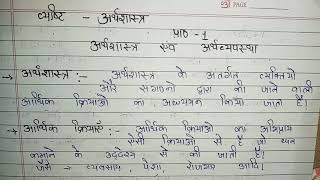 PAGE
व्यष्टि - अर्थशास्त्र
पाठ - 1
अर्थशास्त्र एवं अर्थव्यवस्था
→ अर्थशास्त्र :- अर्थशास्त्र के अंतर्गत व्यक्तियों
और संगठनों द्वारा की जाने वाली
आर्थिक क्रियाओं का अध्ययन किया जाता है।
→ आर्थिक क्रियाएँ :- आर्थिक क्रियाओं का अभिप्राय
ऐसी क्रियाओं से है जो धन
कमाने के उद्देश्य से की जाती है।
जैसे - व्यवसाय, पेशा, रोजगार आदि।